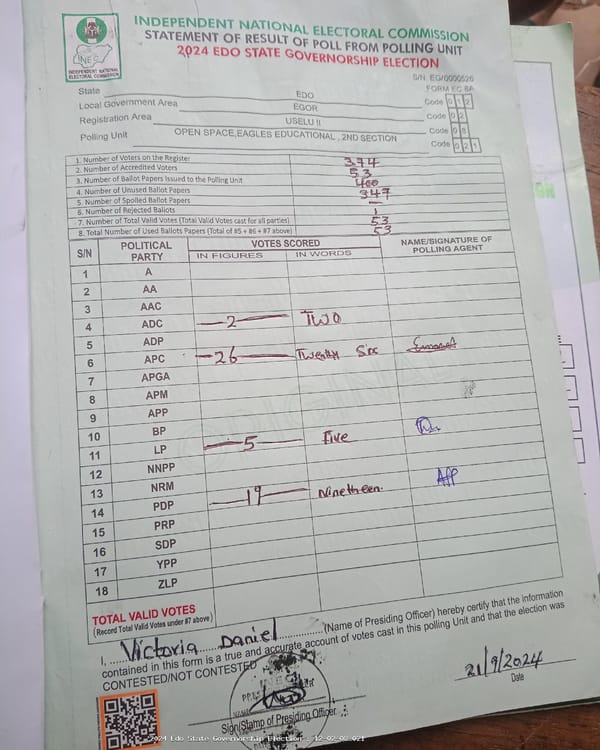 INDEPENDENT NATIONAL ELECTORAL COMMISSION
STATEMENT OF RESULT OF POLL FROM POLLING UNIT
2024 EDO STATE GOVERNORSHIP ELECTION
INEC
INDEPENDENT NATIONAL ELECTORAL COMMISSION
S/N: EG/0000526
FORM EC 8A
State EDO Code 0 1 2
Local Government Area EGOR Code 0 2
Registration Area USELU II Code 0 8
Polling Unit OPEN SPACE,EAGLES EDUCATIONAL , 2ND SECTION Code 0 2 1
1. Number of Voters on the Register 394
2. Number of Accredited Voters 53
3. Number of Ballot Papers Issued to the Polling Unit 400
4. Number of Unused Ballot Papers 347
5. Number of Spoiled Ballot Papers —
6. Number of Rejected Ballots 1
7. Number of Total Valid Votes (Total Valid Votes cast for all parties) 53
8. Total Number of Used Ballots Papers (Total of #5 + #6 + #7 above) 53
S/N POLITICAL PARTY VOTES SCORED NAME/SIGNATURE OF POLLING AGENT
IN FIGURES IN WORDS
1 A
2 AA
3 AAC
4 ADC 2 Two
5 ADP
6 APC 26 Twenty Six
7 APGA
8 APM
9 APP
10 BP
11 LP 5 Five
12 NNPP
13 NRM
14 PDP 19 Ninetheen.
15 PRP
16 SDP
17 YPP
18 ZLP
TOTAL VALID VOTES
(Record Total Valid Votes under #7 above)
I, Victoria Daniel (Name of Presiding Officer) hereby certify that the information
contained in this form is a true and accurate account of votes cast in this polling Unit and that the election was
CONTESTED/NOT CONTESTED
21/9/2024
Date
Sign/Stamp of Presiding Officer
2024 Edo State Governorship Election - 12-02-08-021